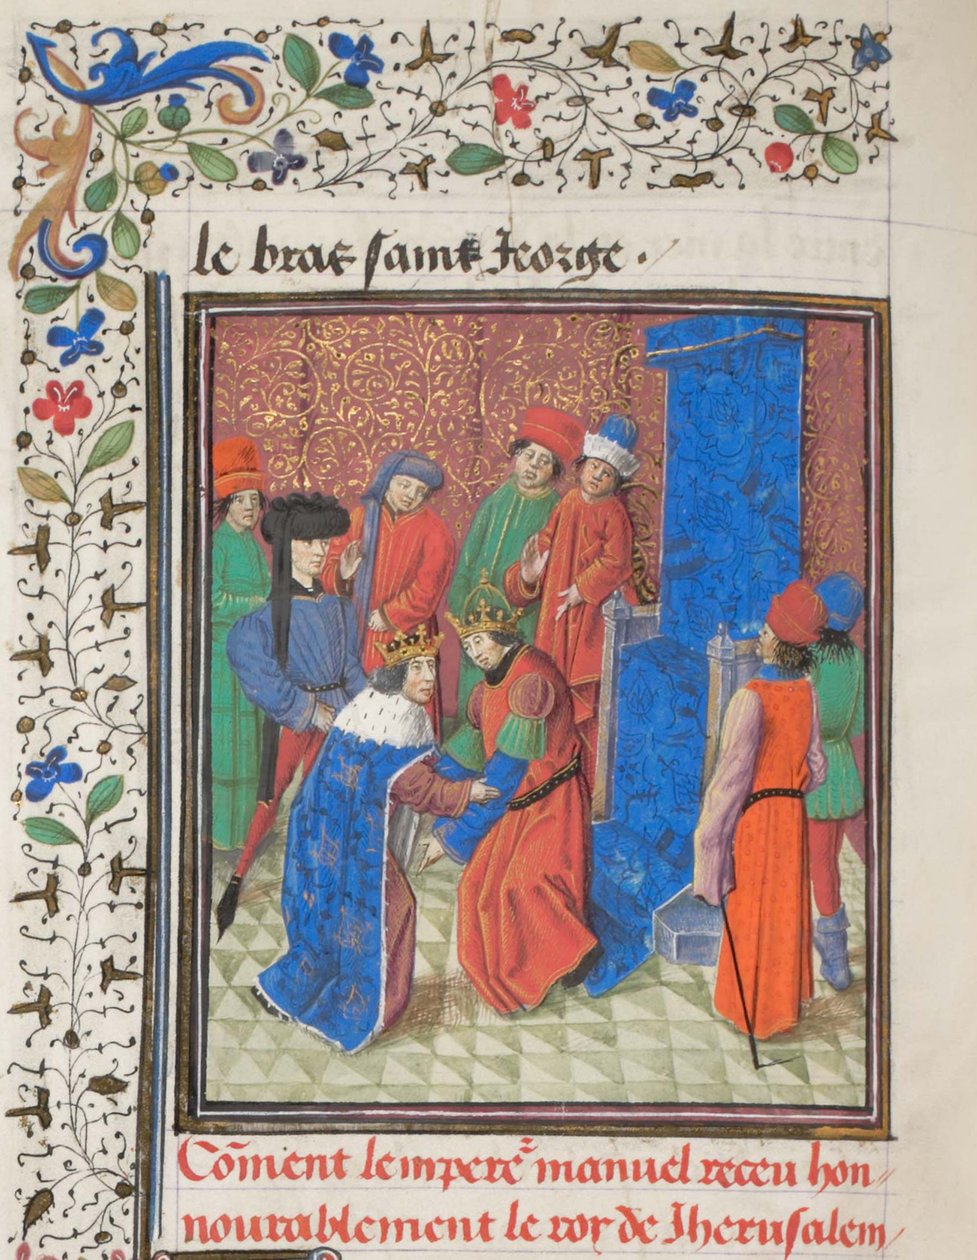 le bras saint Jeorge .
Co͞ment lempere͛ manuel receu hon
nourablement le roy de Jherusalem